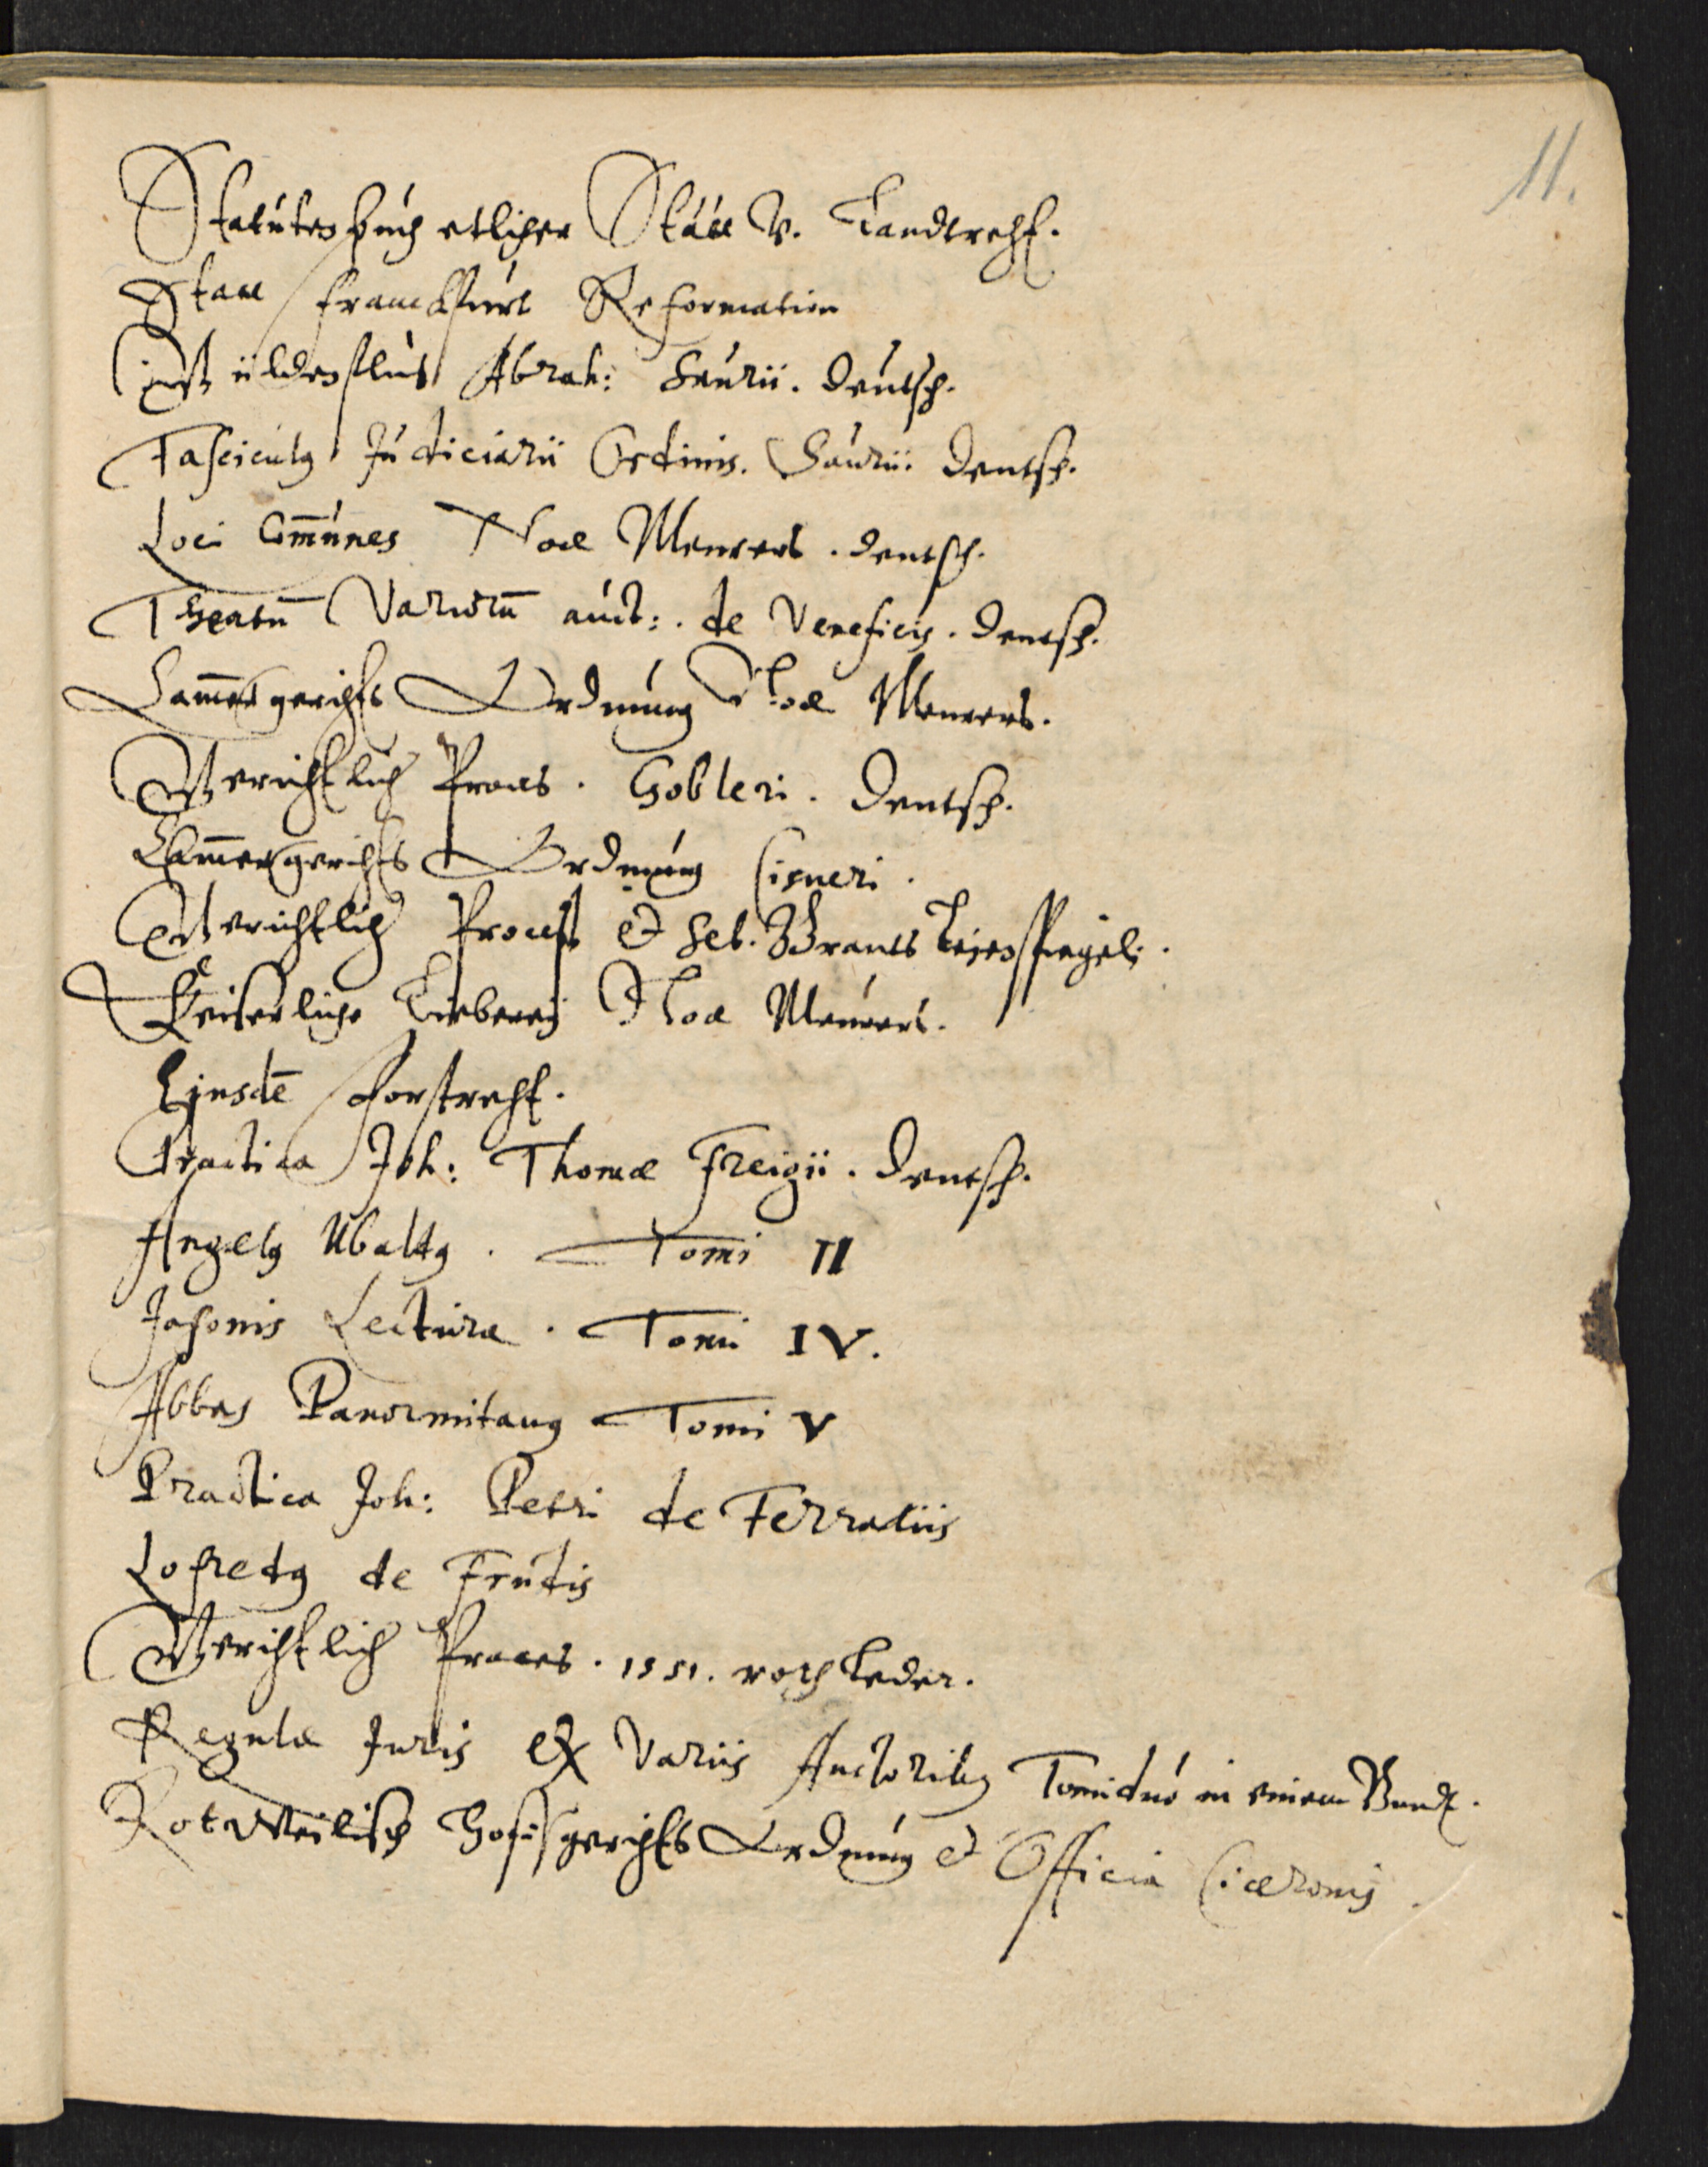 11.
Statutenbuch etlicher Stätt v. Landtrecht.
Statt Franckfurt Reformation
güldenfluß Abrah: Saurii. deutsch.
Fasciculꝰ Judiciarii Ordinis. Saurii. deutsch.
Loci Cōmunes Noæ Meurers. deutsch.
Theatrū Variorū auct:. de Veneficis. deutsch.
Cam̄ergerichts Ordnung Noæ Meurers.
Gerichtlich Proces. Gobleri. deutsch.
Cam̄ergerichts Ordnung Cisneri.
Gerichtlich Proceß & Seb. Brants Leyenspiegel.
Keiserliche Liberey Noæ Meurers.
Ejusdē Forstrecht.
Practica Joh: Thomæ Freigii. deutsch.
Angelꝰ Ubaldꝰ. Tomi II
Jasonis Lectura. Tomi IV.
Abbas Panormitanꝰ Tomi V
Practica Joh: Petri de Ferrariis
Lofredꝰ de
Gerichtlich Proces. 1551. roth Leder.
Regulæ Juris ex Variis Auctoribꝰ Tomi duo in einem Bund.
Rotweilisch Hofsgerichts Ordnung & Officia Ciceronis.